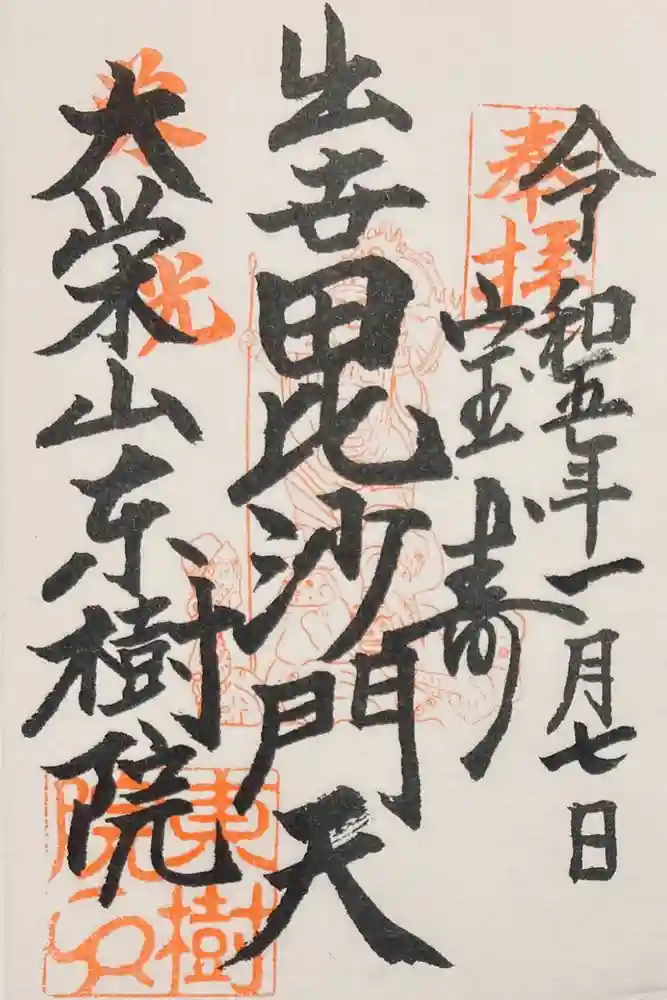 令和五年一月七日
奉拝
宝寿
出世毘沙門天
大栄山東樹院
栄光
東樹院